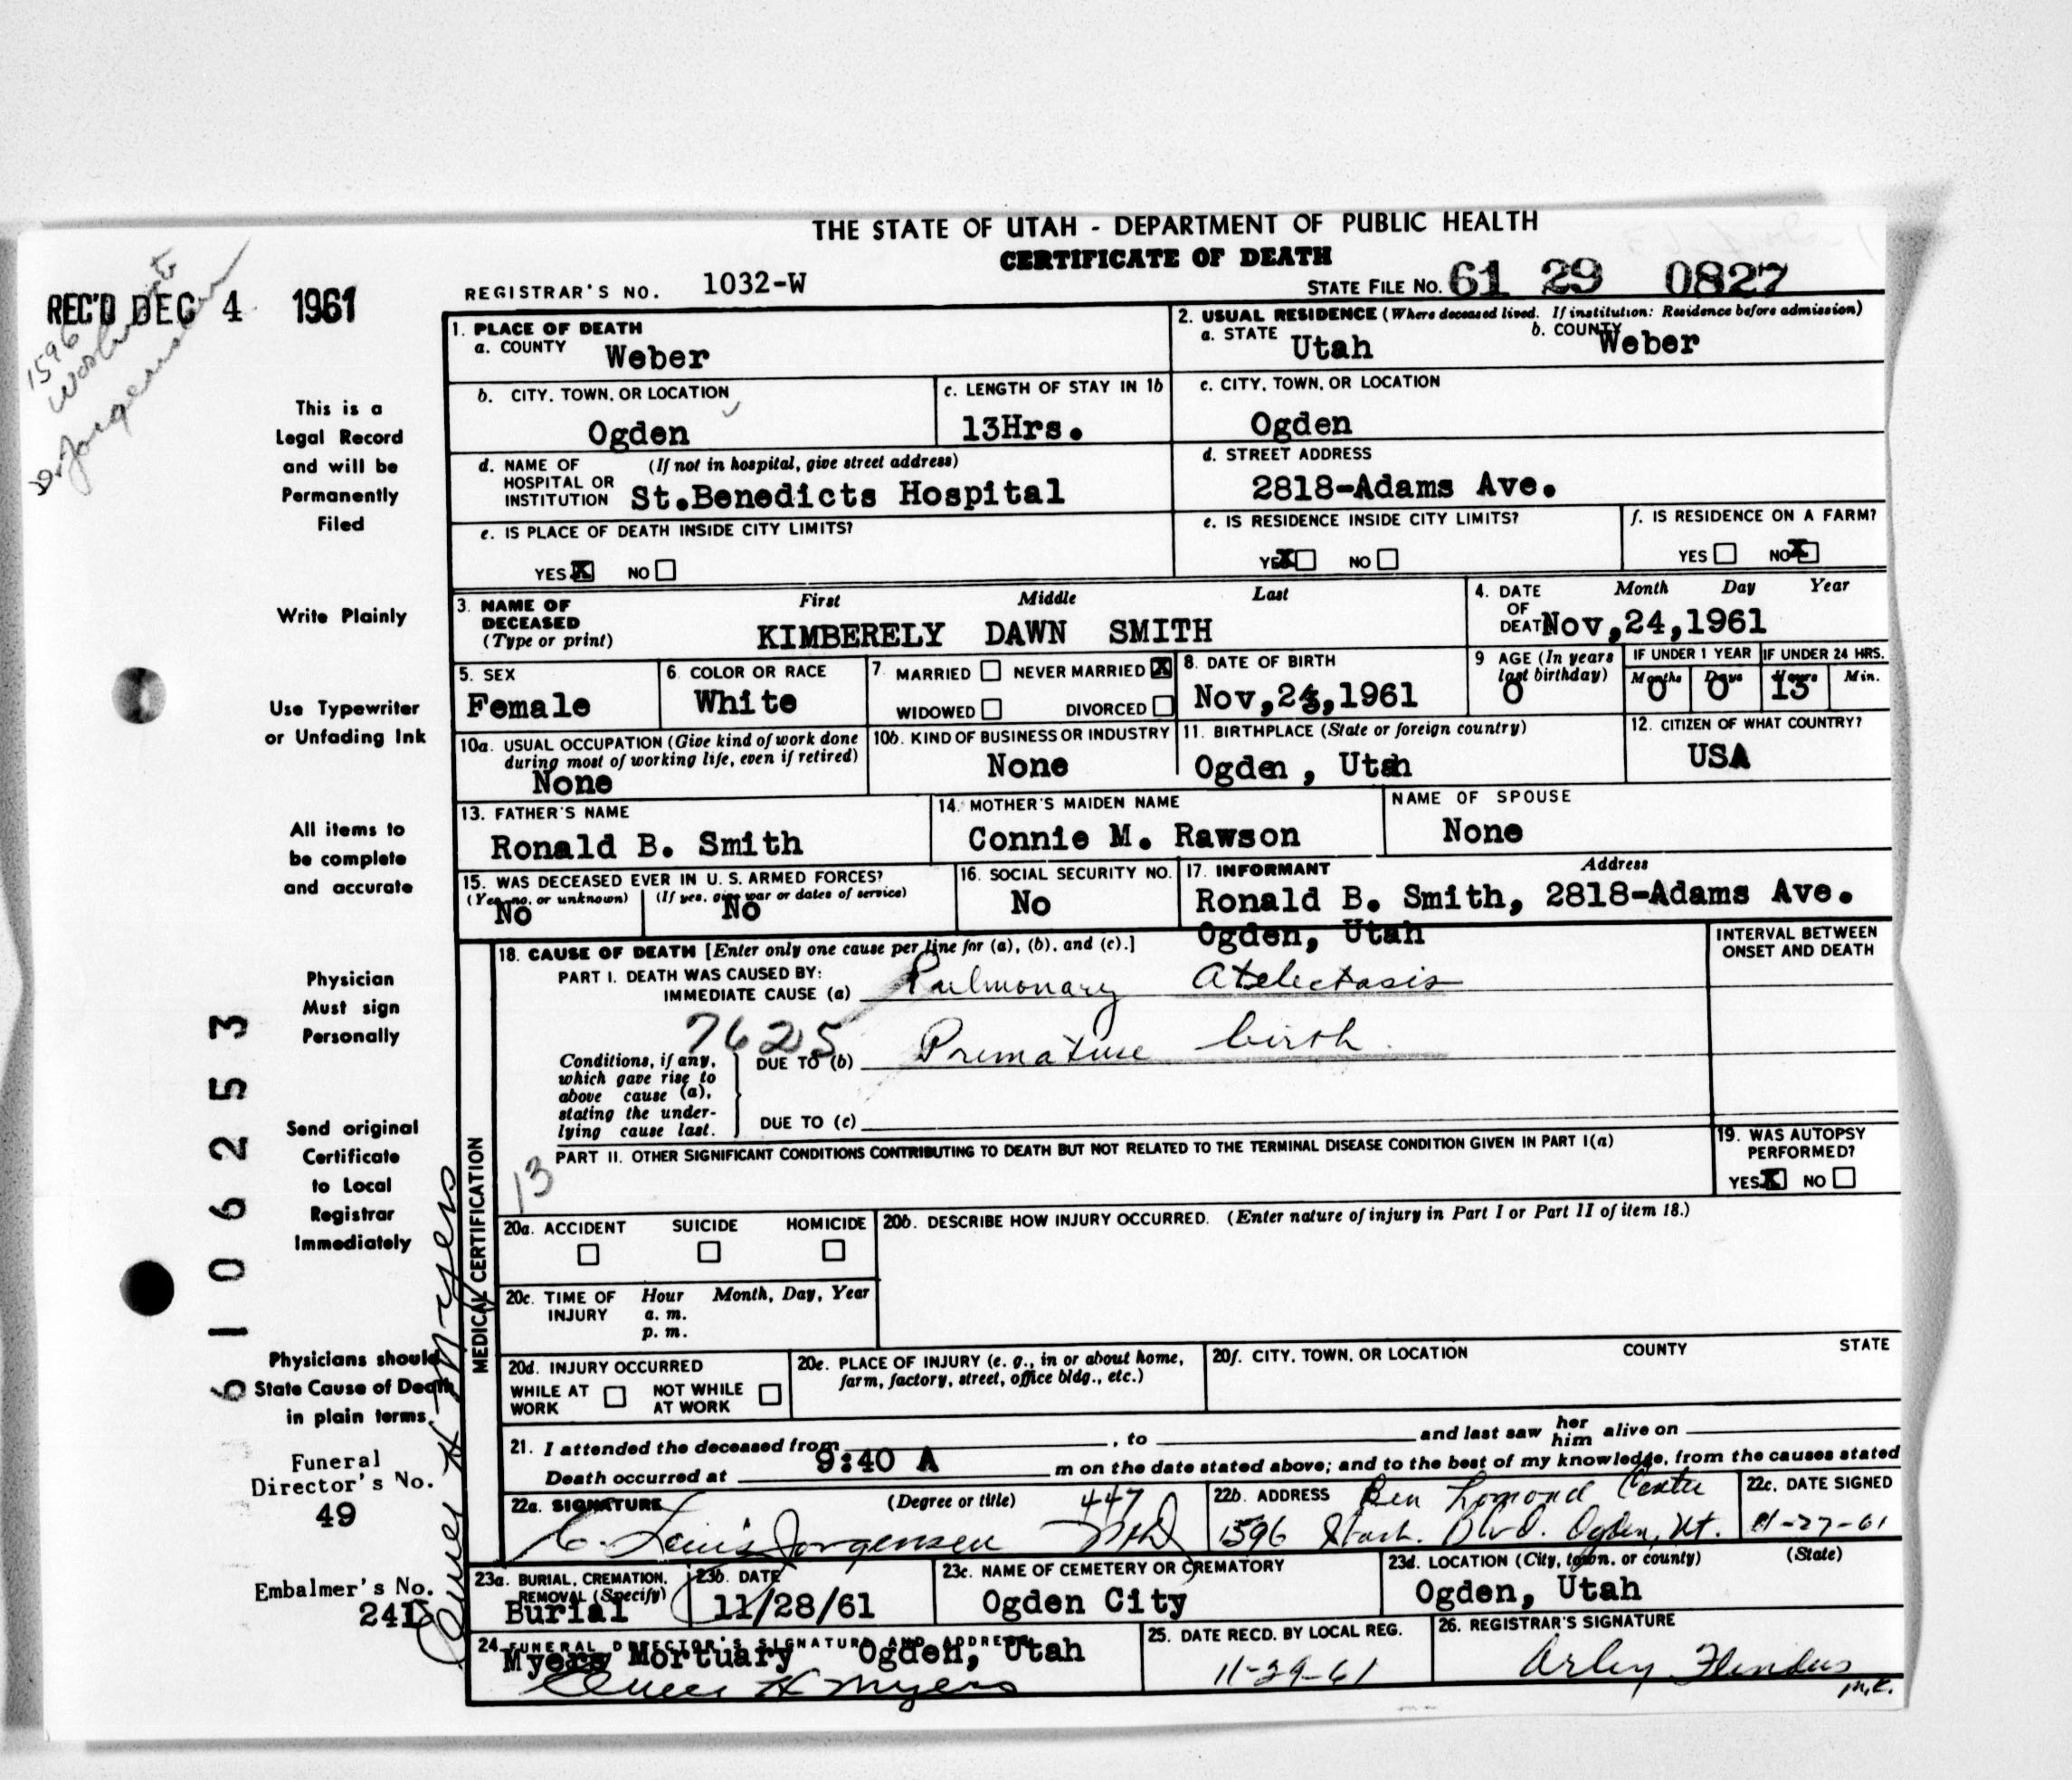 THE STATE OF UTAH - DEPARTMENT OF PUBLIC HEALTH
CERTIFICATE OF DEATH
REC'D DEC 4 1961
REGISTRAR'S NO. 1032-W
STATE FILE NO. 61 29 0827
1596
Dr. Jorgensen
This is a
Legal Record
and will be
Permanently
Filed
Write Plainly
Use Typewriter
or Unfading Ink
All items to
be complete
and accurate
Physician
Must sign
Personally
Send original
Certificate
to Local
Registrar
Immediately
Physicians should
State Cause of Death
in plain terms.
Funeral
Director's No.
49
Embalmer's No.
241
6106253
1. PLACE OF DEATH
a. COUNTY Weber
2. USUAL RESIDENCE (Where deceased lived. If institution: Residence before admission)
a. STATE Utah b. COUNTY Weber
b. CITY, TOWN, OR LOCATION Ogden
c. LENGTH OF STAY IN 1b 13Hrs.
c. CITY, TOWN, OR LOCATION Ogden
d. NAME OF HOSPITAL OR INSTITUTION (If not in hospital, give street address) St.Benedicts Hospital
d. STREET ADDRESS 2818-Adams Ave.
e. IS PLACE OF DEATH INSIDE CITY LIMITS?
YES X NO
e. IS RESIDENCE INSIDE CITY LIMITS?
YES X NO
f. IS RESIDENCE ON A FARM?
YES NO X
3. NAME OF DECEASED (Type or print)
First Middle Last
KIMBERELY DAWN SMITH
4. DATE OF DEATH Month Day Year
Nov,24,1961
5. SEX Female
6. COLOR OR RACE White
7. MARRIED NEVER MARRIED X
WIDOWED DIVORCED
8. DATE OF BIRTH Nov,23,1961
9 AGE (In years last birthday) 0
IF UNDER 1 YEAR Months 0 Days 0
IF UNDER 24 HRS. Hours 13 Min.
10a. USUAL OCCUPATION (Give kind of work done during most of working life, even if retired) None
10b. KIND OF BUSINESS OR INDUSTRY None
11. BIRTHPLACE (State or foreign country) Ogden, Utah
12. CITIZEN OF WHAT COUNTRY? USA
13. FATHER'S NAME Ronald B. Smith
14. MOTHER'S MAIDEN NAME Connie M. Rawson
NAME OF SPOUSE None
15. WAS DECEASED EVER IN U. S. ARMED FORCES?
(Yes, no, or unknown) No (If yes, give war or dates of service) No
16. SOCIAL SECURITY NO. No
17. INFORMANT Address
Ronald B. Smith, 2818-Adams Ave.
Ogden, Utah
MEDICAL CERTIFICATION
18. CAUSE OF DEATH [Enter only one cause per line for (a), (b), and (c).]
INTERVAL BETWEEN ONSET AND DEATH
PART I. DEATH WAS CAUSED BY:
IMMEDIATE CAUSE (a) Pulmonary Atelectasis
7625
Conditions, if any, which gave rise to above cause (a), stating the underlying cause last.
DUE TO (b) Premature birth
DUE TO (c)
PART II. OTHER SIGNIFICANT CONDITIONS CONTRIBUTING TO DEATH BUT NOT RELATED TO THE TERMINAL DISEASE CONDITION GIVEN IN PART I(a)
13
19. WAS AUTOPSY PERFORMED?
YES X NO
20a. ACCIDENT SUICIDE HOMICIDE
20b. DESCRIBE HOW INJURY OCCURRED. (Enter nature of injury in Part I or Part II of item 18.)
20c. TIME OF INJURY Hour a. m. p. m. Month, Day, Year
20d. INJURY OCCURRED
WHILE AT WORK NOT WHILE AT WORK
20e. PLACE OF INJURY (e. g., in or about home, farm, factory, street, office bldg., etc.)
20f. CITY, TOWN, OR LOCATION COUNTY STATE
21. I attended the deceased from , to and last saw her him alive on
Death occurred at 9:40 A m on the date stated above; and to the best of my knowledge, from the causes stated
22a. SIGNATURE (Degree or title) 447
C. Louis Jorgensen MD
22b. ADDRESS Ben Lomond Center
1596 Wash. Blvd. Ogden, Ut.
22c. DATE SIGNED 11-27-61
23a. BURIAL, CREMATION, REMOVAL (Specify) Burial
23b. DATE 11/28/61
23c. NAME OF CEMETERY OR CREMATORY Ogden City
23d. LOCATION (City, town, or county) (State) Ogden, Utah
24. FUNERAL DIRECTOR'S SIGNATURE AND ADDRESS
Myers Mortuary Ogden, Utah
H Myers
25. DATE RECD. BY LOCAL REG. 11-29-61
26. REGISTRAR'S SIGNATURE
Arley Flinders